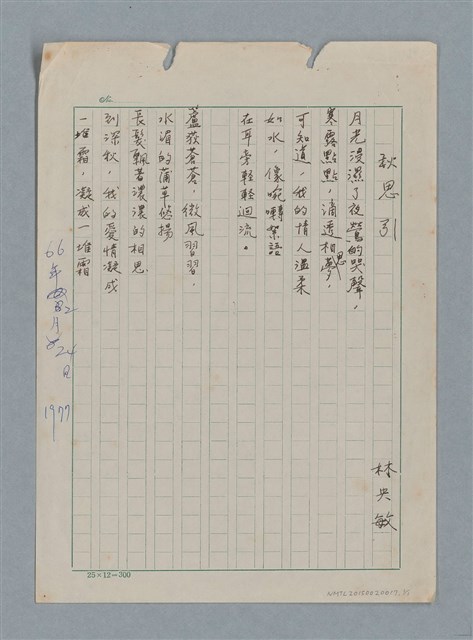 秋思引
林央敏
月光浸濕了夜鶯的哭聲，
寒露點點，滴透相思夢，
可知道，我的情人溫柔
如水，像婉囀絮語
在耳旁輕輕迴流。
蘆荻蒼蒼，微風習習，
水湄的蒲草悠揚
長髮飄着濃濃的相思
到深秋，我的愛情凝成
一堆霜，凝成一堆霜
66年 2月 24日
1977
25×12=300